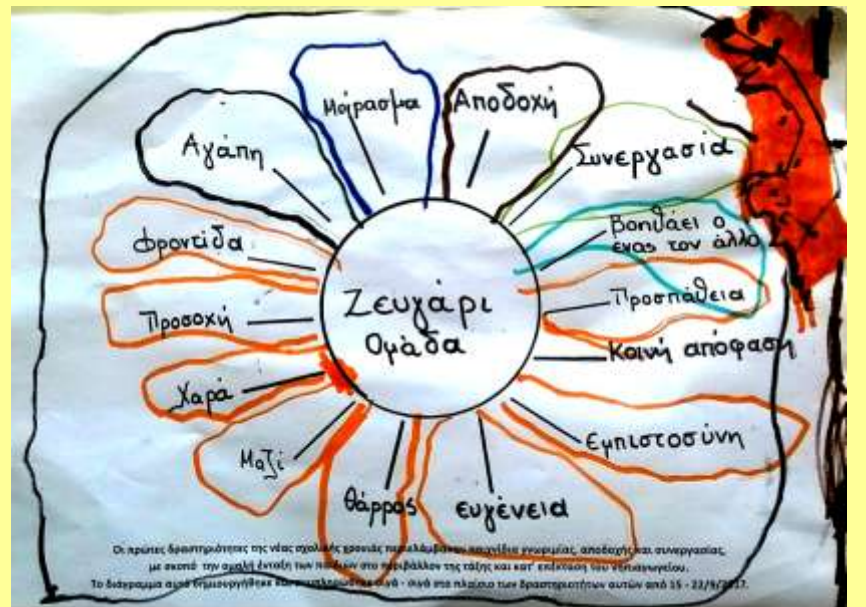 Ζευγάρι
Ομάδα
Μοίρασμα
Αποδοχή
Συνεργασία
βοηθάει ο
ένας τον άλλο
Προσπάθεια
Κοινή απόφαση
Εμπιστοσύνη
ευγένεια
θάρρος
Μαζί
Χαρά
Προσοχή
φροντίδα
Αγάπη
Οι πρώτες δραστηριότητες της νέας σχολικής χρονιάς περιελάμβαναν παιχνίδια γνωριμίας, αποδοχής και συνεργασίας,
με σκοπό την ομαλή ένταξη των παιδιών στο περιβάλλον της τάξης και κατ' επέκταση του νηπιαγωγείου.
Το διάγραμμα αυτό δημιουργήθηκε και συμπληρώθηκε σιγά - σιγά στο πλαίσιο των δραστηριοτήτων αυτών από 15 - 22/9/2017.